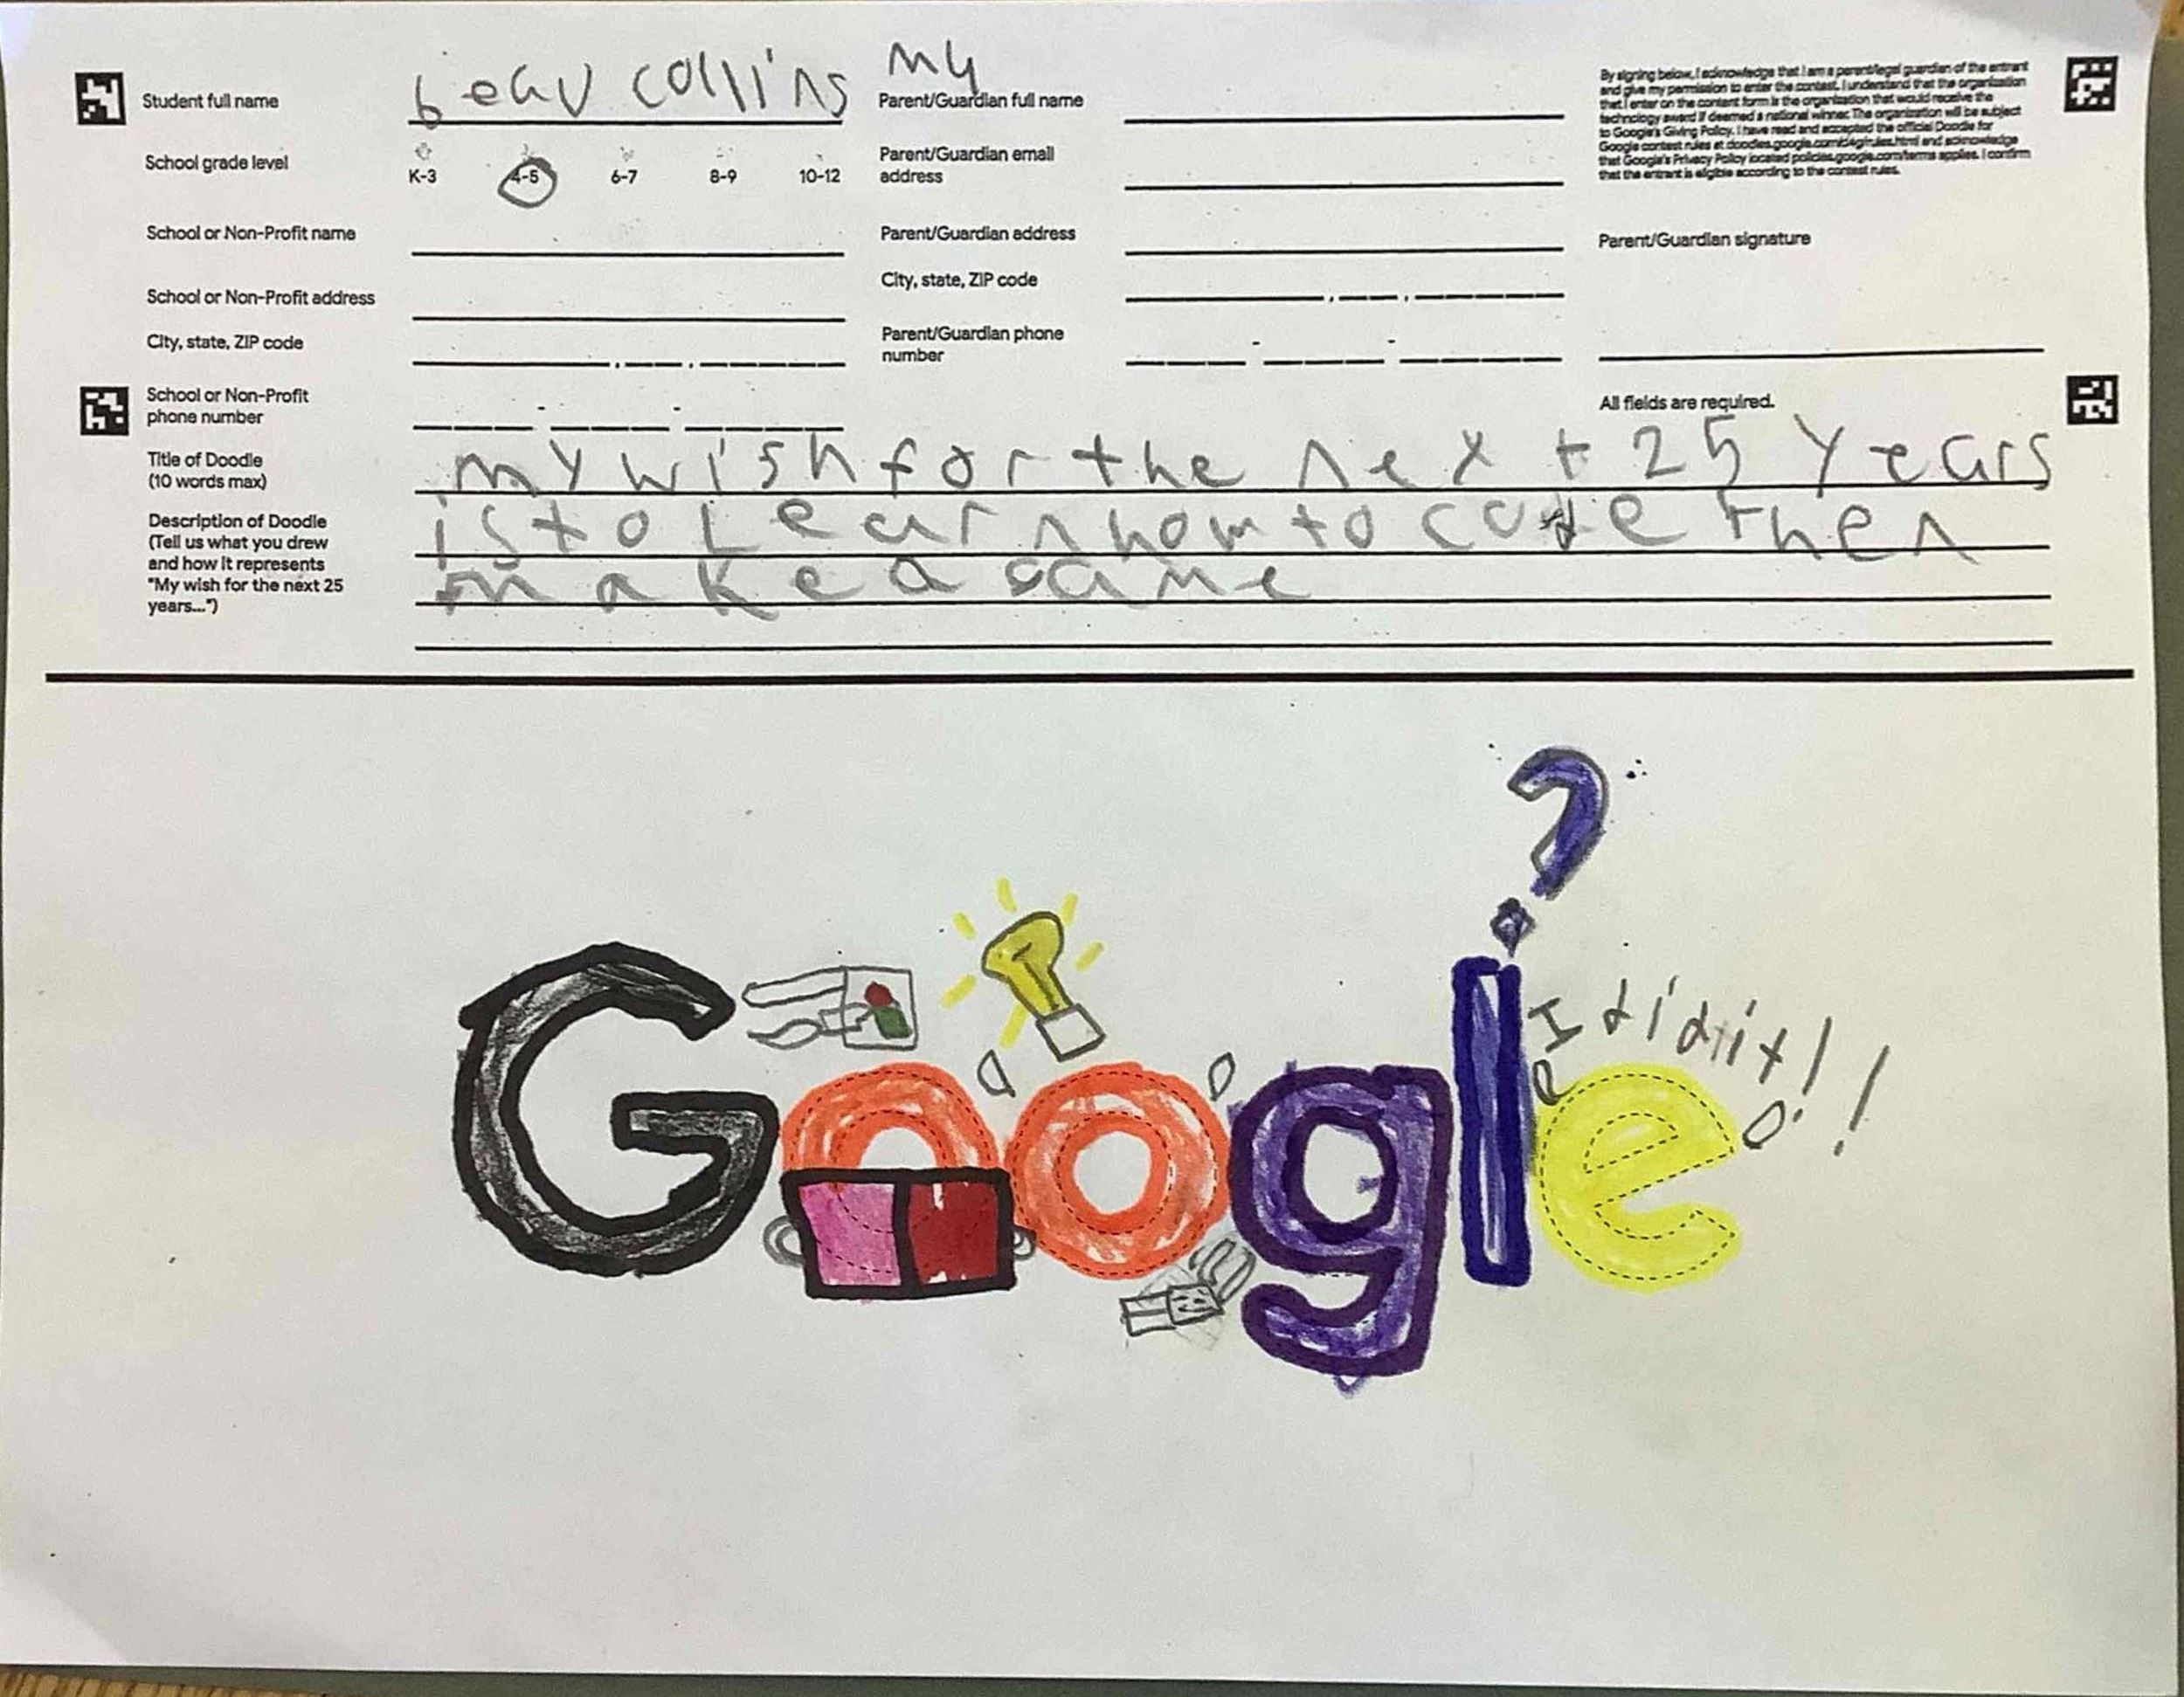 Student full name beau collins
my
Parent/Guardian full name
By signing below, I acknowledge that I am a parent/legal guardian of the entrant
and give my permission to enter the contest. I understand that the organization
that I enter on the contest form is the organization that would receive the
technology award if deemed a national winner. The organization will be subject
to Google's Giving Policy. I have read and accepted the official Doodle for
Google contest rules at doodles.google.com/d4g/rules.html and acknowledge
that Google's Privacy Policy located policies.google.com/terms applies. I confirm
that the entrant is eligible according to the contest rules.
School grade level
K-3 4-5 6-7 8-9 10-12
Parent/Guardian email
address
School or Non-Profit name
Parent/Guardian address
Parent/Guardian signature
School or Non-Profit address
City, state, ZIP code
City, state, ZIP code
Parent/Guardian phone
number
School or Non-Profit
phone number
All fields are required.
Title of Doodle
(10 words max)
my wish for the next 25 years
Description of Doodle
(Tell us what you drew
and how it represents
"My wish for the next 25
years...")
is to Learn how to code then
make a game
?
I did it!!
Google